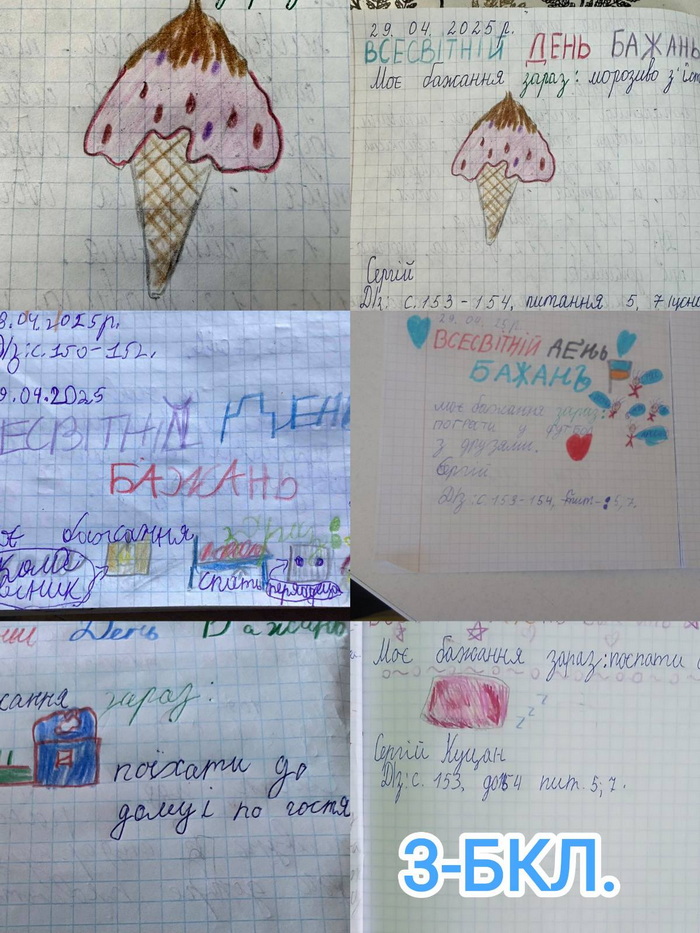 29.04.2025р.
ВСЕСВІТНІЙ ДЕНЬ БАЖАНЬ
Моє бажання зараз: морозиво з'їст
Сергій
Д/з: с.153-154, питання 5, 7 (усно
8.04.2025р.
Д/з: с.150-152.
9.04.2025
ЕСВІТНІЙ ДЕН
БАЖАНЬ
бажання зараз
спать
29.04.25р.
ВСЕСВІТНІЙ ДЕНЬ
БАЖАНЬ
моє бажання зараз:
пограти у футбол
з друзями.
Сергій
Д/з: с.153-154, пит-5,7.
День Бажань
жання зараз:
поїхати до
дому і по гостя
Моє бажання зараз: поспати
Z Z Z
Сергій Куцан
Д/з: с. 153, до154 пит. 5,7.
3-БКЛ.